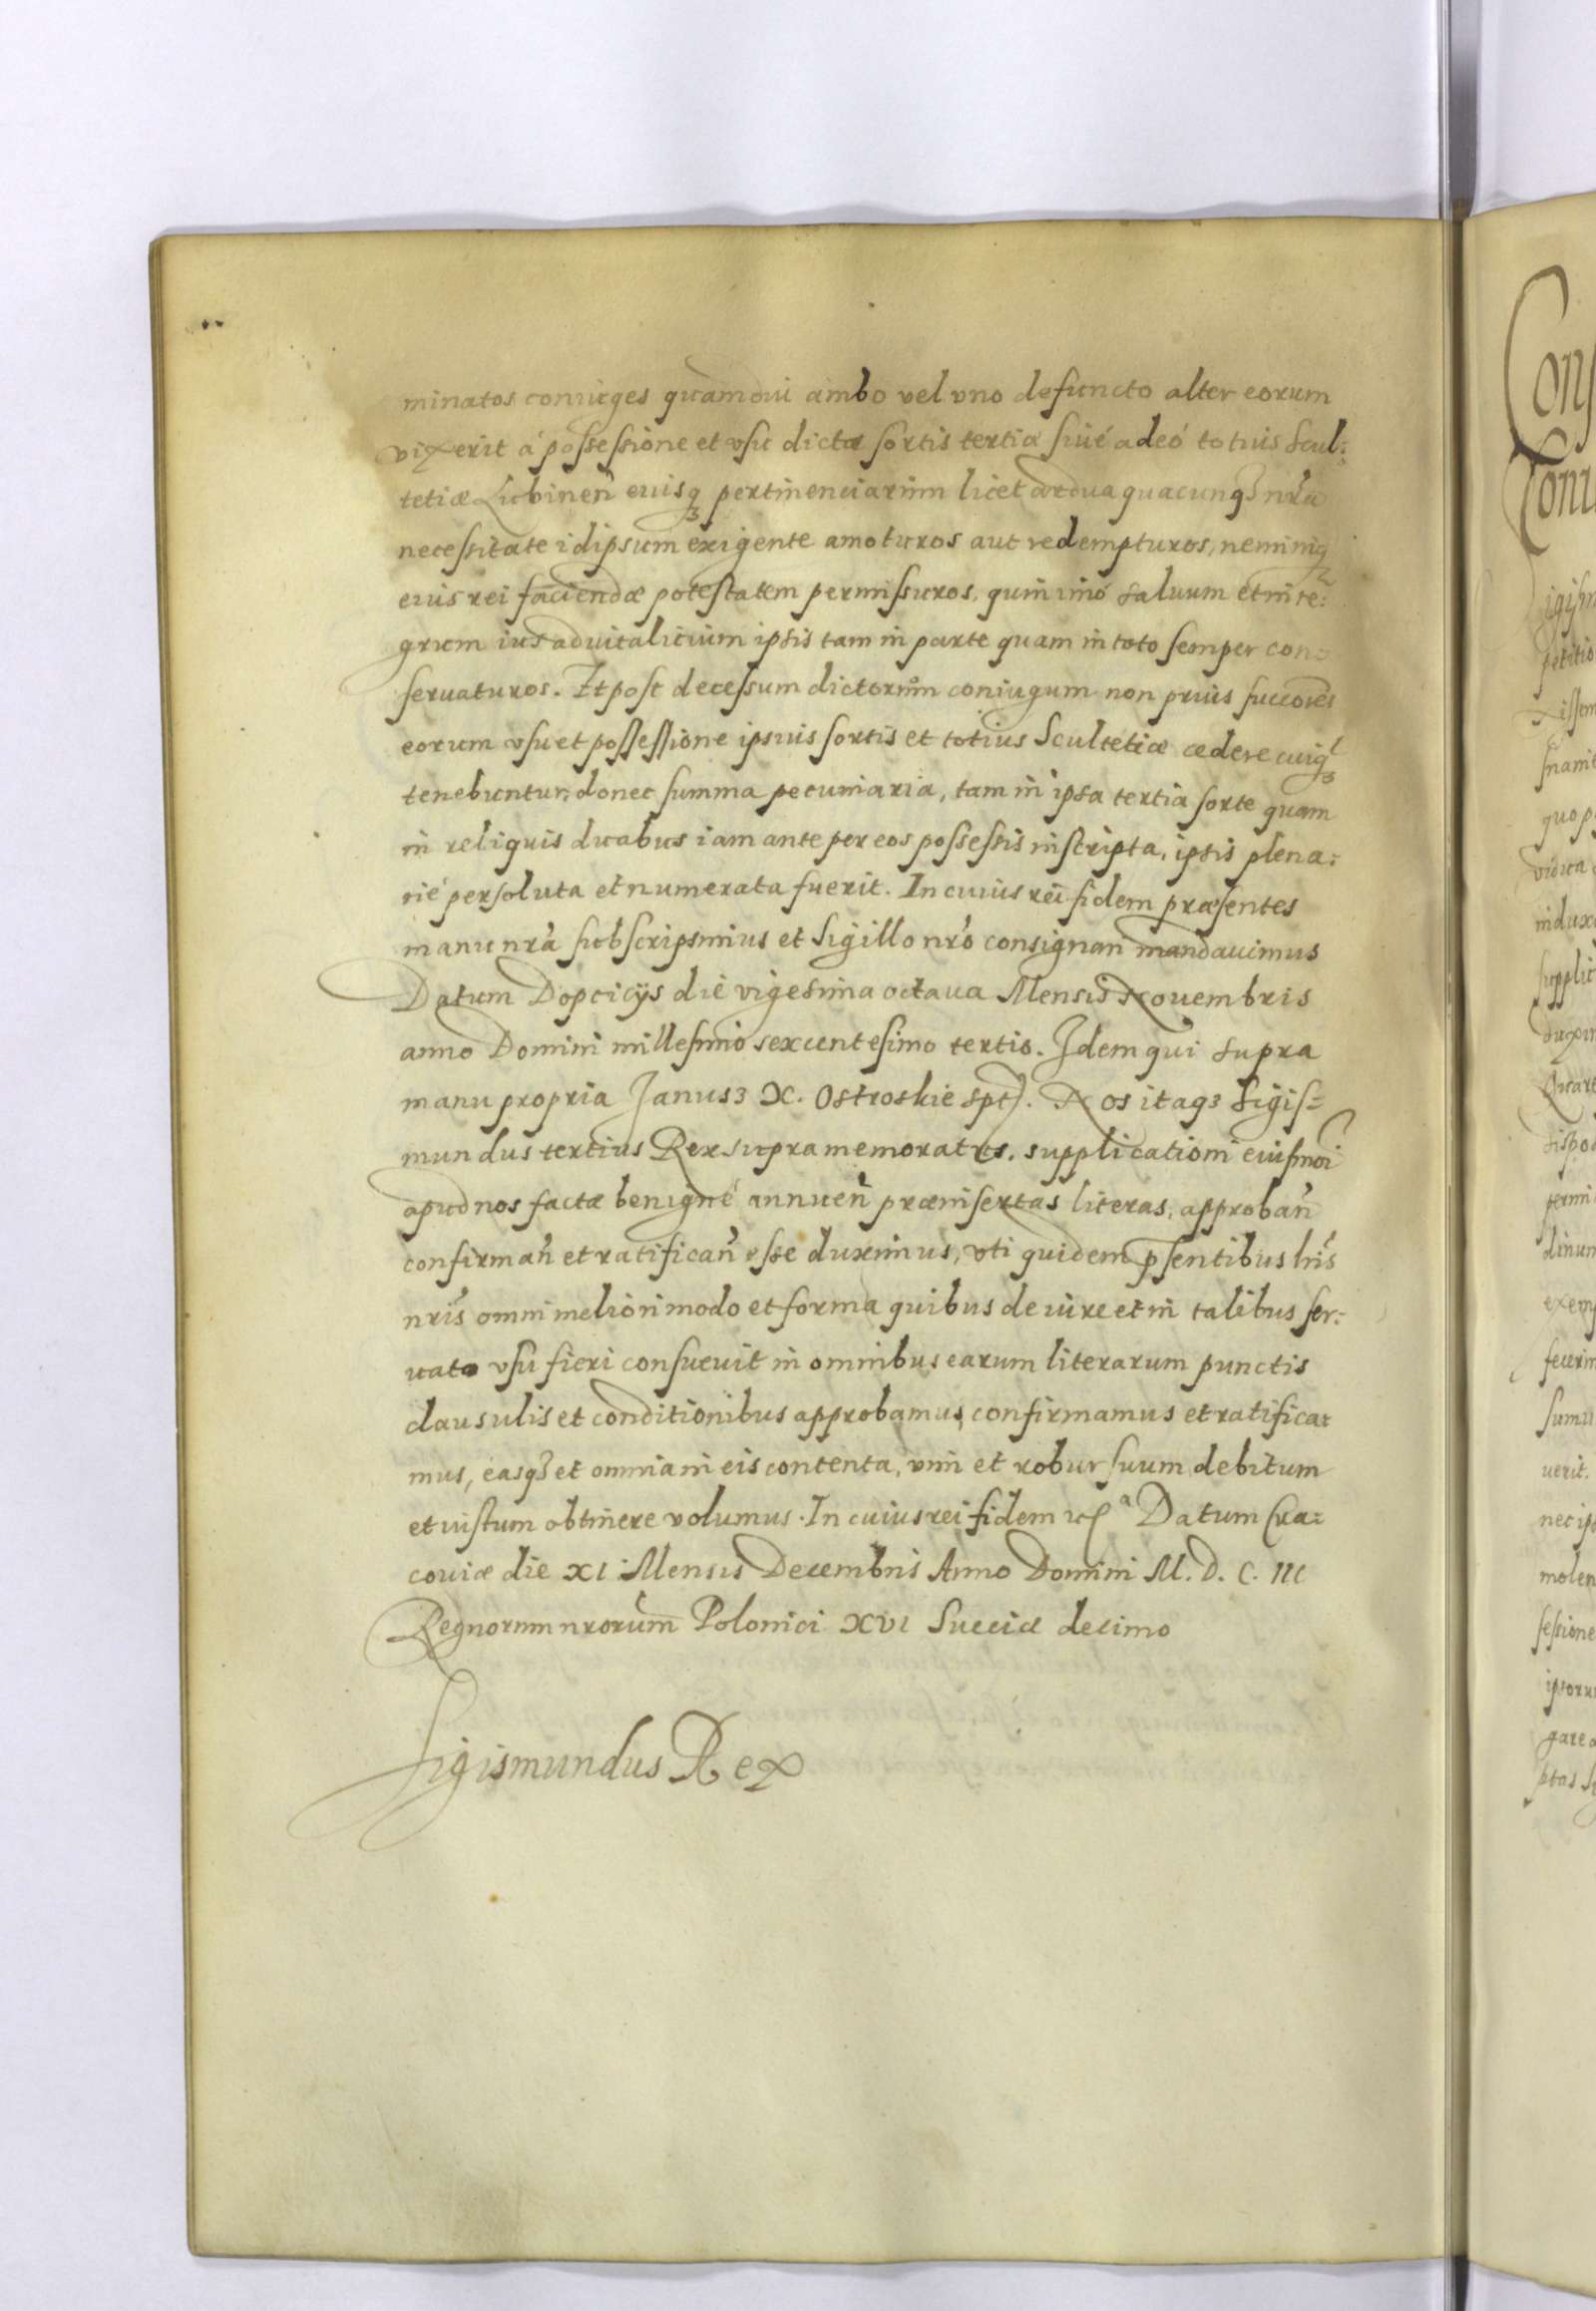 minatos coniuges quamdiu ambo vel vno defuncto alter eorum
vixerit á possessione et vsu dictæ sortis tertiæ siué adeó totius Scul:
tetiæ Lubineñ eiusq3 pertinenciarum licet ardua quacunq3 nr̃a
necessitate idipsum exigente amoturos aut redempturos, neminiq3
eius rei faciendæ potestatem permissuros, quin imó saluum et inte:
grum ius aduitalitium ipsis tam in parte quam in toto semper con
seruaturos. Et post decessum dictorum coniugum non prius succores
eorum vsu et possessione ipsius sortis et totius Scultetiæ cedere cuiq3
tenebuntur, donec summa pecuniaria, tam in ipsa tertia sorte quam
in reliquis duabus iam ante per eos possessis inscripta, ipsis plena:
rié persoluta et numerata fuerit. In cuius rei fidem præsentes
manu nr̃a subscripsimus et Sigillo nr̃o consignari mandauimus
Datum Dopcicijs die vigesima octaua Mensis Nouembris
anno Domini millesimo sexcentesimo tertio. Idem qui supra
manu propria Janus3 X. Ostroskie spt). Nos itaq3 Sigis=
mundus tertius Rex supra memoratus. supplicationi eiusmoi
apud nos factæ benigné annueñ præinsertas literas, approbañ
confirmañ et ratificañ esse duximus, vti quidem p̃sentibus lris
nris omni meliori modo et forma quibus de iure et in talibus ser:
uato vsu fieri consueuit in omnibus earum literarum punctis
clausulis et conditionibus approbamus, confirmamus et ratifica:
mus, easq3 et omnia in eis contenta, vim et robur suum debitum
et iustum obtinere volumus. In cuius rei fidem Datum Cra:
couiæ die XI Mensis Decembris Anno Domini M. D. C. III
Regnorum nrorum Polonici XVI Sueciæ decimo
Sigismundus Rex